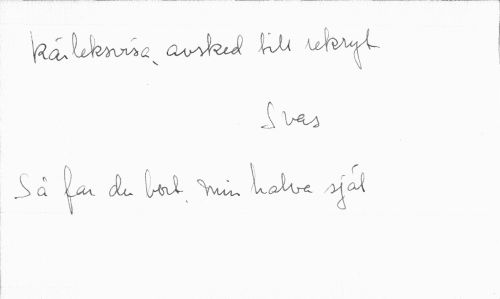 Kärleksvisa, avsked till rekryt
Svas
Så far du bort, min halva själ